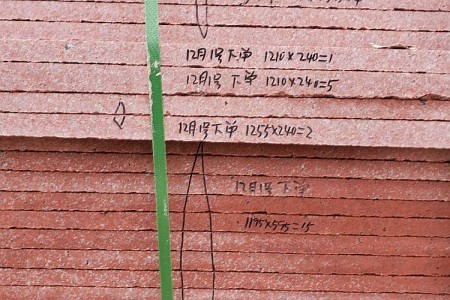 12月1号下单 1210×240=1
12月1号下单 1210×240=5
12月1号下单 1255×240=2
12月1号下单
1195×595=15